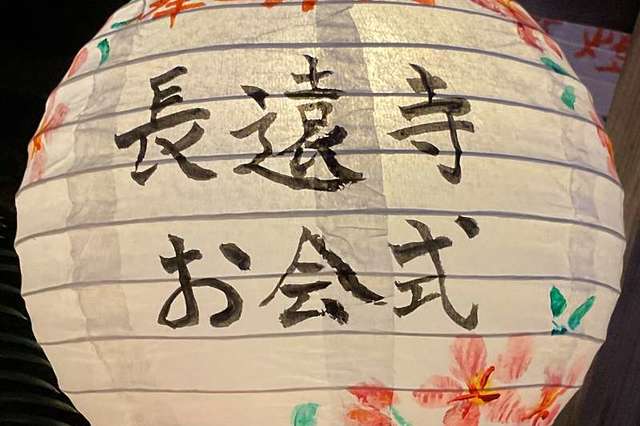 長遠寺
お会式